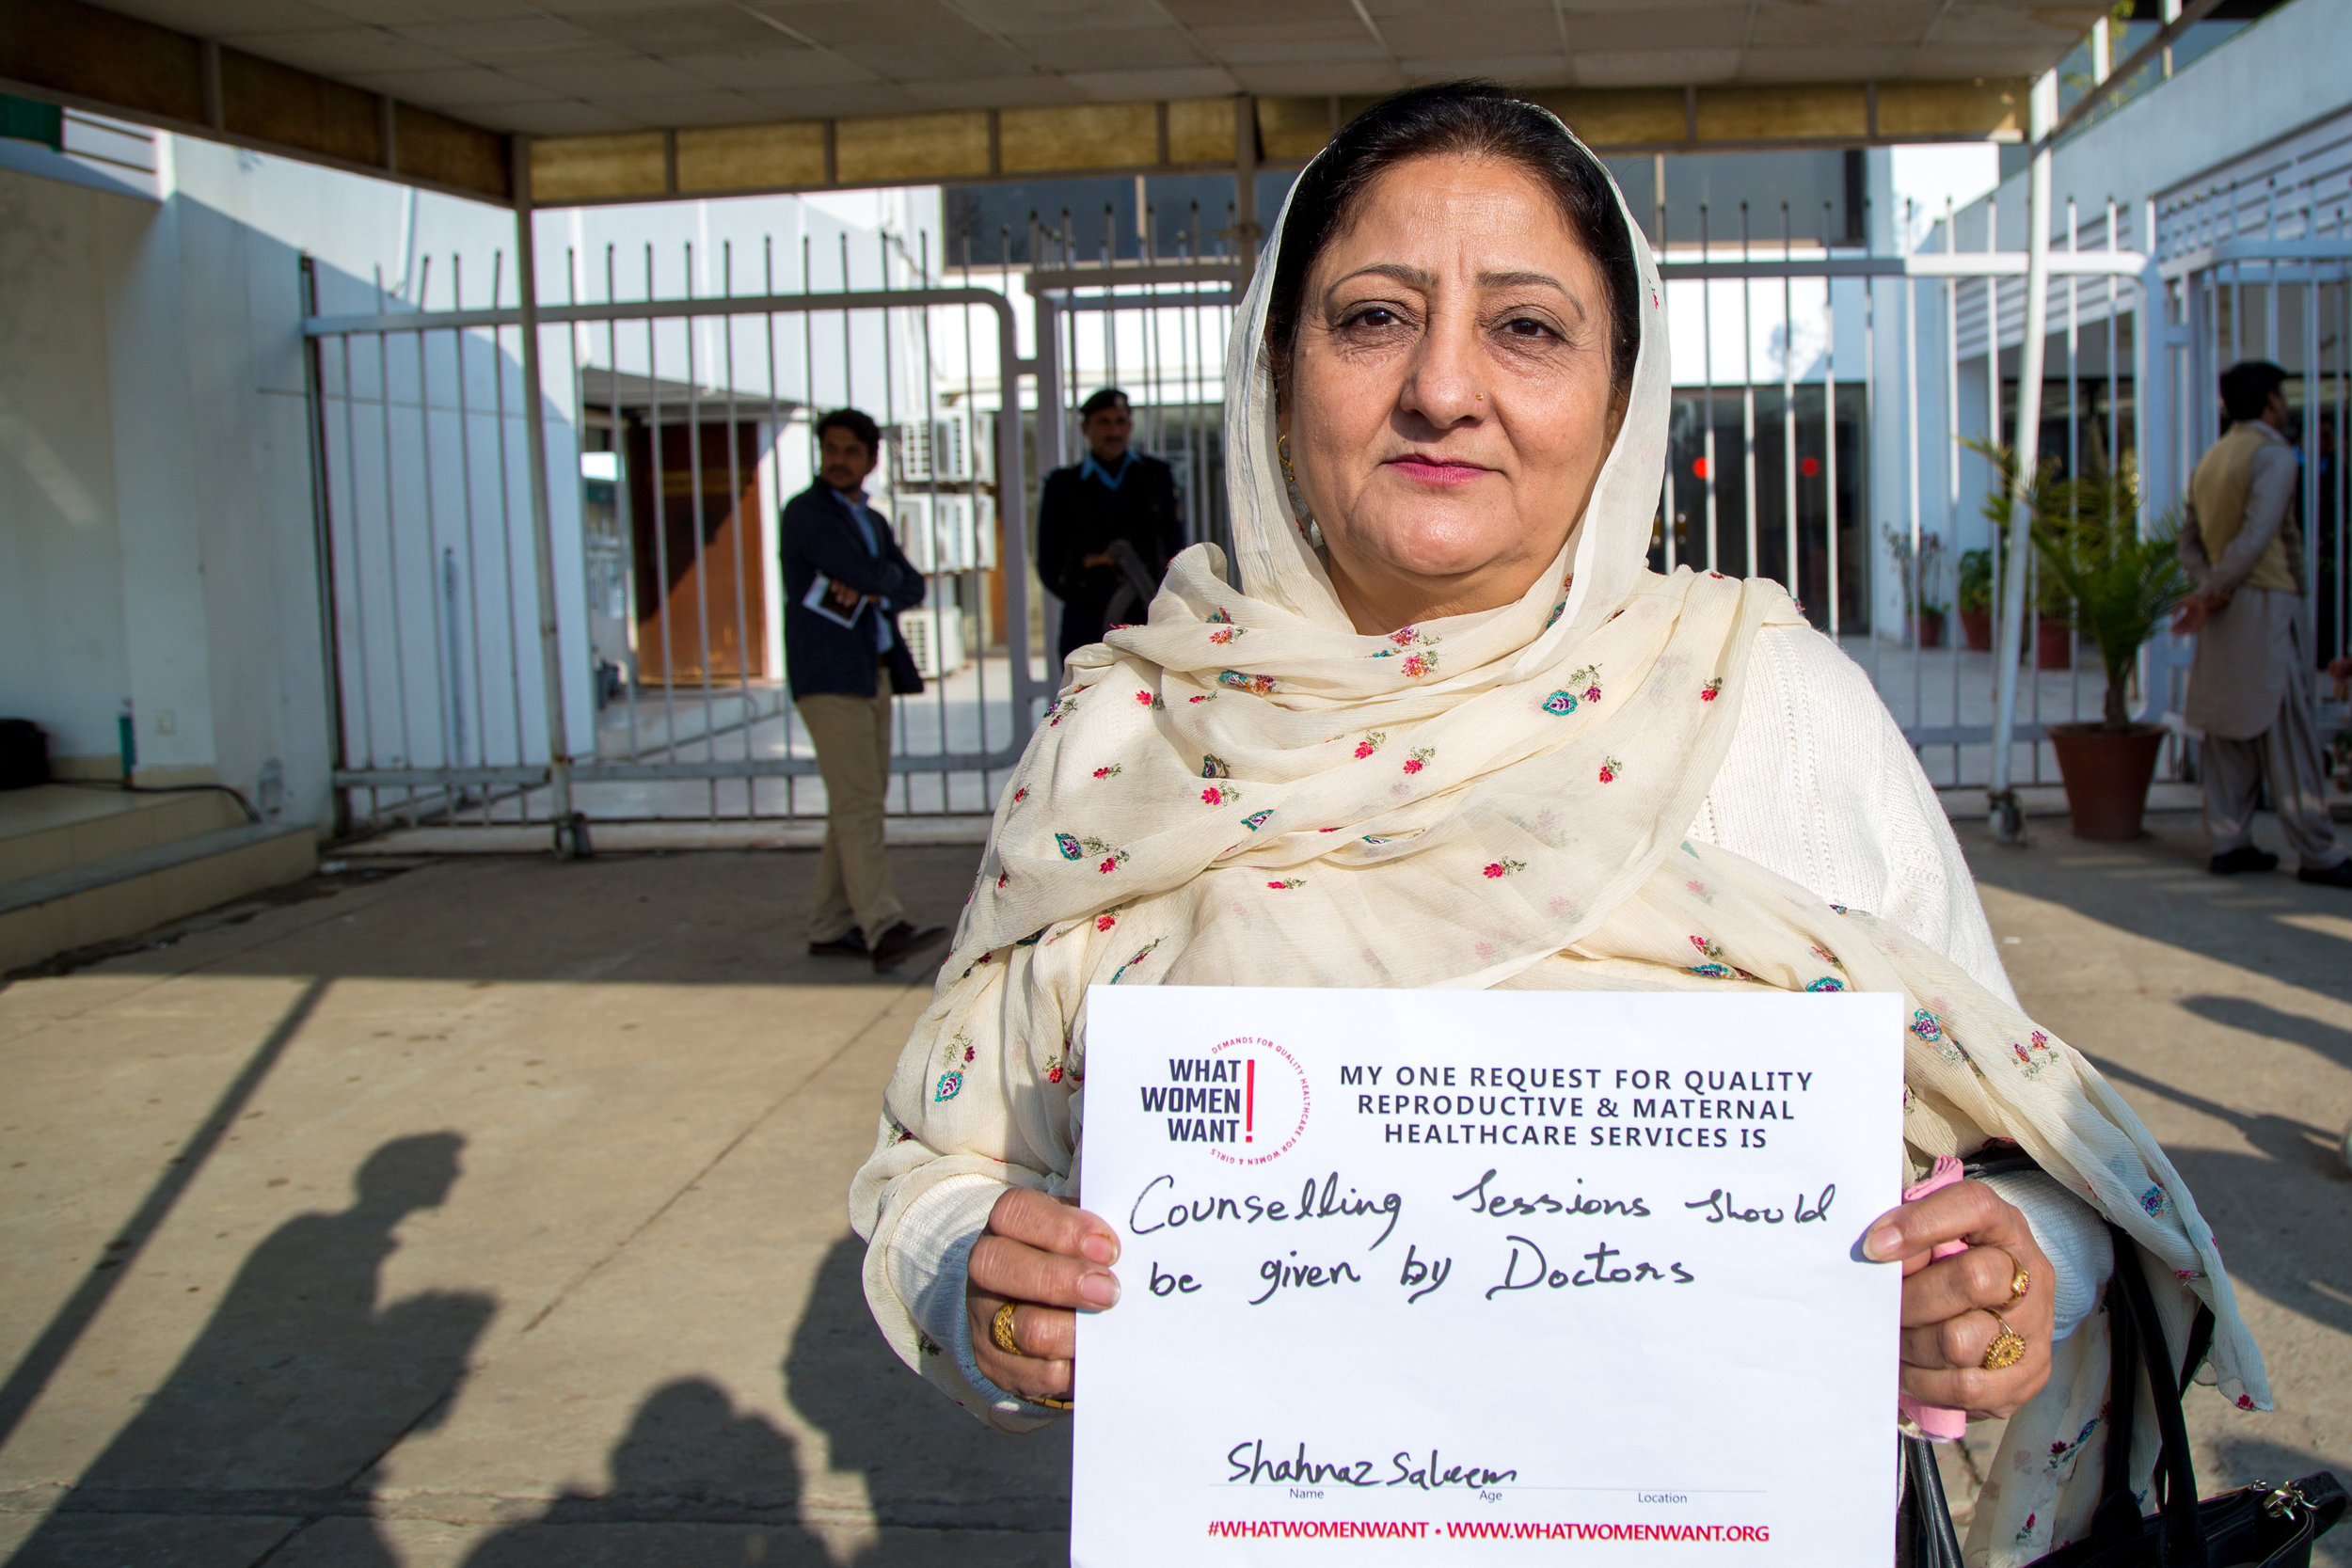 WHAT
WOMEN
WANT!
DEMANDS FOR QUALITY HEALTHCARE FOR WOMEN & GIRLS
MY ONE REQUEST FOR QUALITY
REPRODUCTIVE & MATERNAL
HEALTHCARE SERVICES IS
Counselling Sessions Should
be given by Doctors
Shahnaz Saleem
Name Age Location
#WHATWOMENWANT • WWW.WHATWOMENWANT.ORG